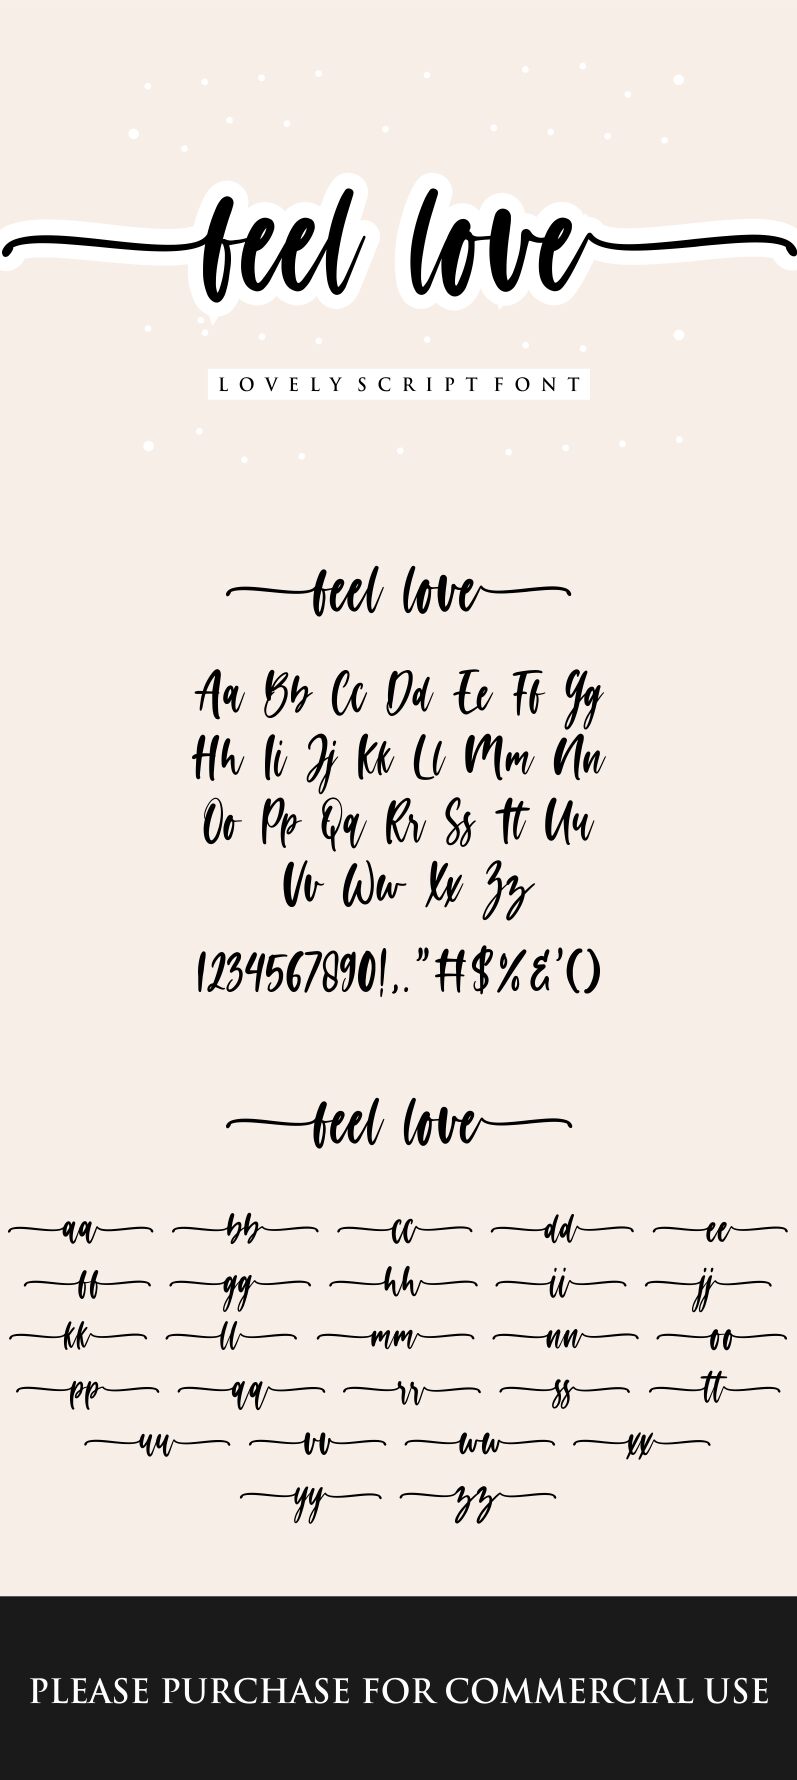 feel love
LOVELY SCRIPT FONT
feel love
Aa Bb Cc Dd Ee Ff Gg
Hh Ii Jj Kk Ll Mm Nn
Oo Pp Qq Rr Ss Tt Uu
Vv Ww Xx Zz
1234567890!,."#$%&'()
feel love
aa bb cc dd ee
ff gg hh ii jj
kk ll mm nn oo
pp qq rr ss tt
uu vv ww xx
yy zz
PLEASE PURCHASE FOR COMMERCIAL USE